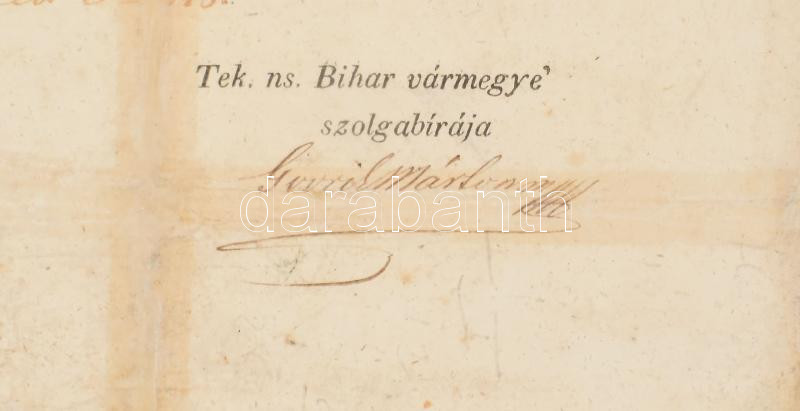 Tek. ns. Bihar vármegye'
szolgabírája
Márton
darabanth